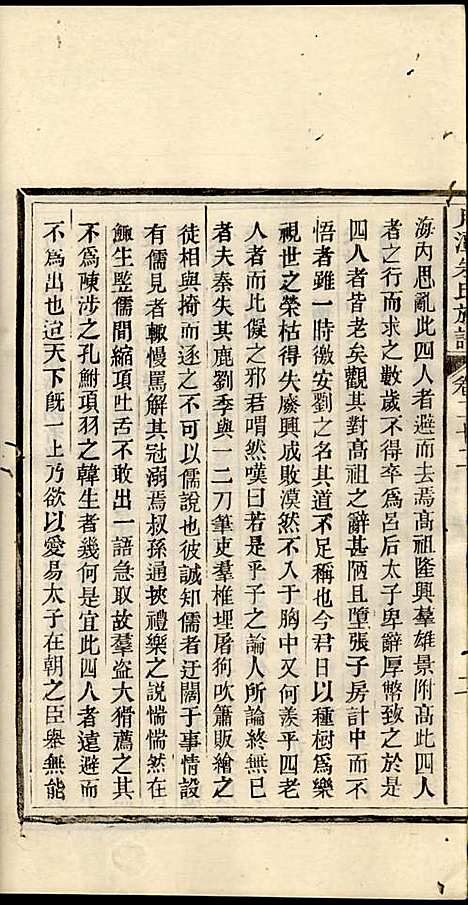 海內思亂此四人者避而去焉高祖隆興羣雄景附高此四人
者之行而求之數歲不得卒為呂后太子卑辭厚幣致之於是
四人者皆老矣觀其對高祖之辭甚陋且墮張子房計中而不
悟者雖一時徼安劉之名其道不足稱也今君日以種樹為樂
視世之榮枯得失廢興成敗漠然不入于胸中又何羨乎四老
人者而比儗之邪君喟然嘆曰若是乎子之論人所論終無已
者夫秦失其鹿劉季與一二刀筆吏羣椎埋屠狗吹簫販繒之
徒相與掎而逐之不可以儒說也彼誠知儒者迂闊于事情設
有儒見者輒慢罵解其冠溺焉叔孫通挾禮樂之說惴惴然在
鯫生豎儒間縮項吐舌不敢出一語急取故羣盜大猾薦之其
不為陳涉之孔鮒項羽之韓生者幾何是宜此四人者遠避而
不為出也迨天下旣一上乃欲以愛易太子在朝之臣舉無能
朱氏族譜
卷二十二